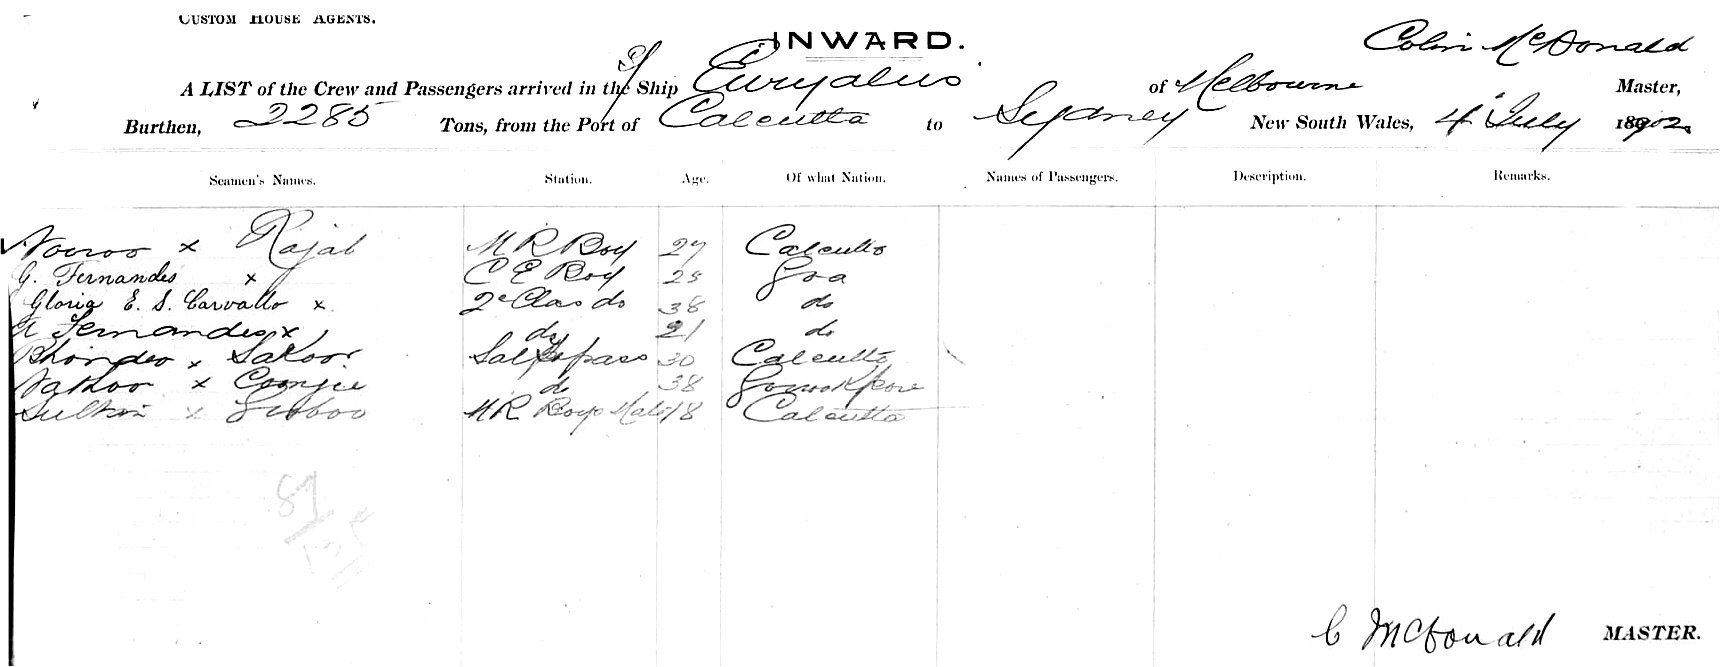 CUSTOM HOUSE AGENTS.
INWARD.
Colin McDonald
A LIST of the Crew and Passengers arrived in the S/ Ship Euryalus of Melbourne Master,
Burthen, 2285 Tons, from the Port of Calcutta to Sydney New South Wales, 4 July 1902
Seamen's Names. Station. Age. Of what Nation. Names of Passengers. Description. Remarks.
Nooroo x Rajab M R Boy 27 Calcutta
G. Fernandes x C E Boy 25 Goa
Gloria E. S. Carvallo x 2e Clas do 38 do
Fernandes x do 21 do
x Sakoor 30 Calcutta
x do 38
Sultan x M R Boys 18 Calcutta
81
C McDonald MASTER.